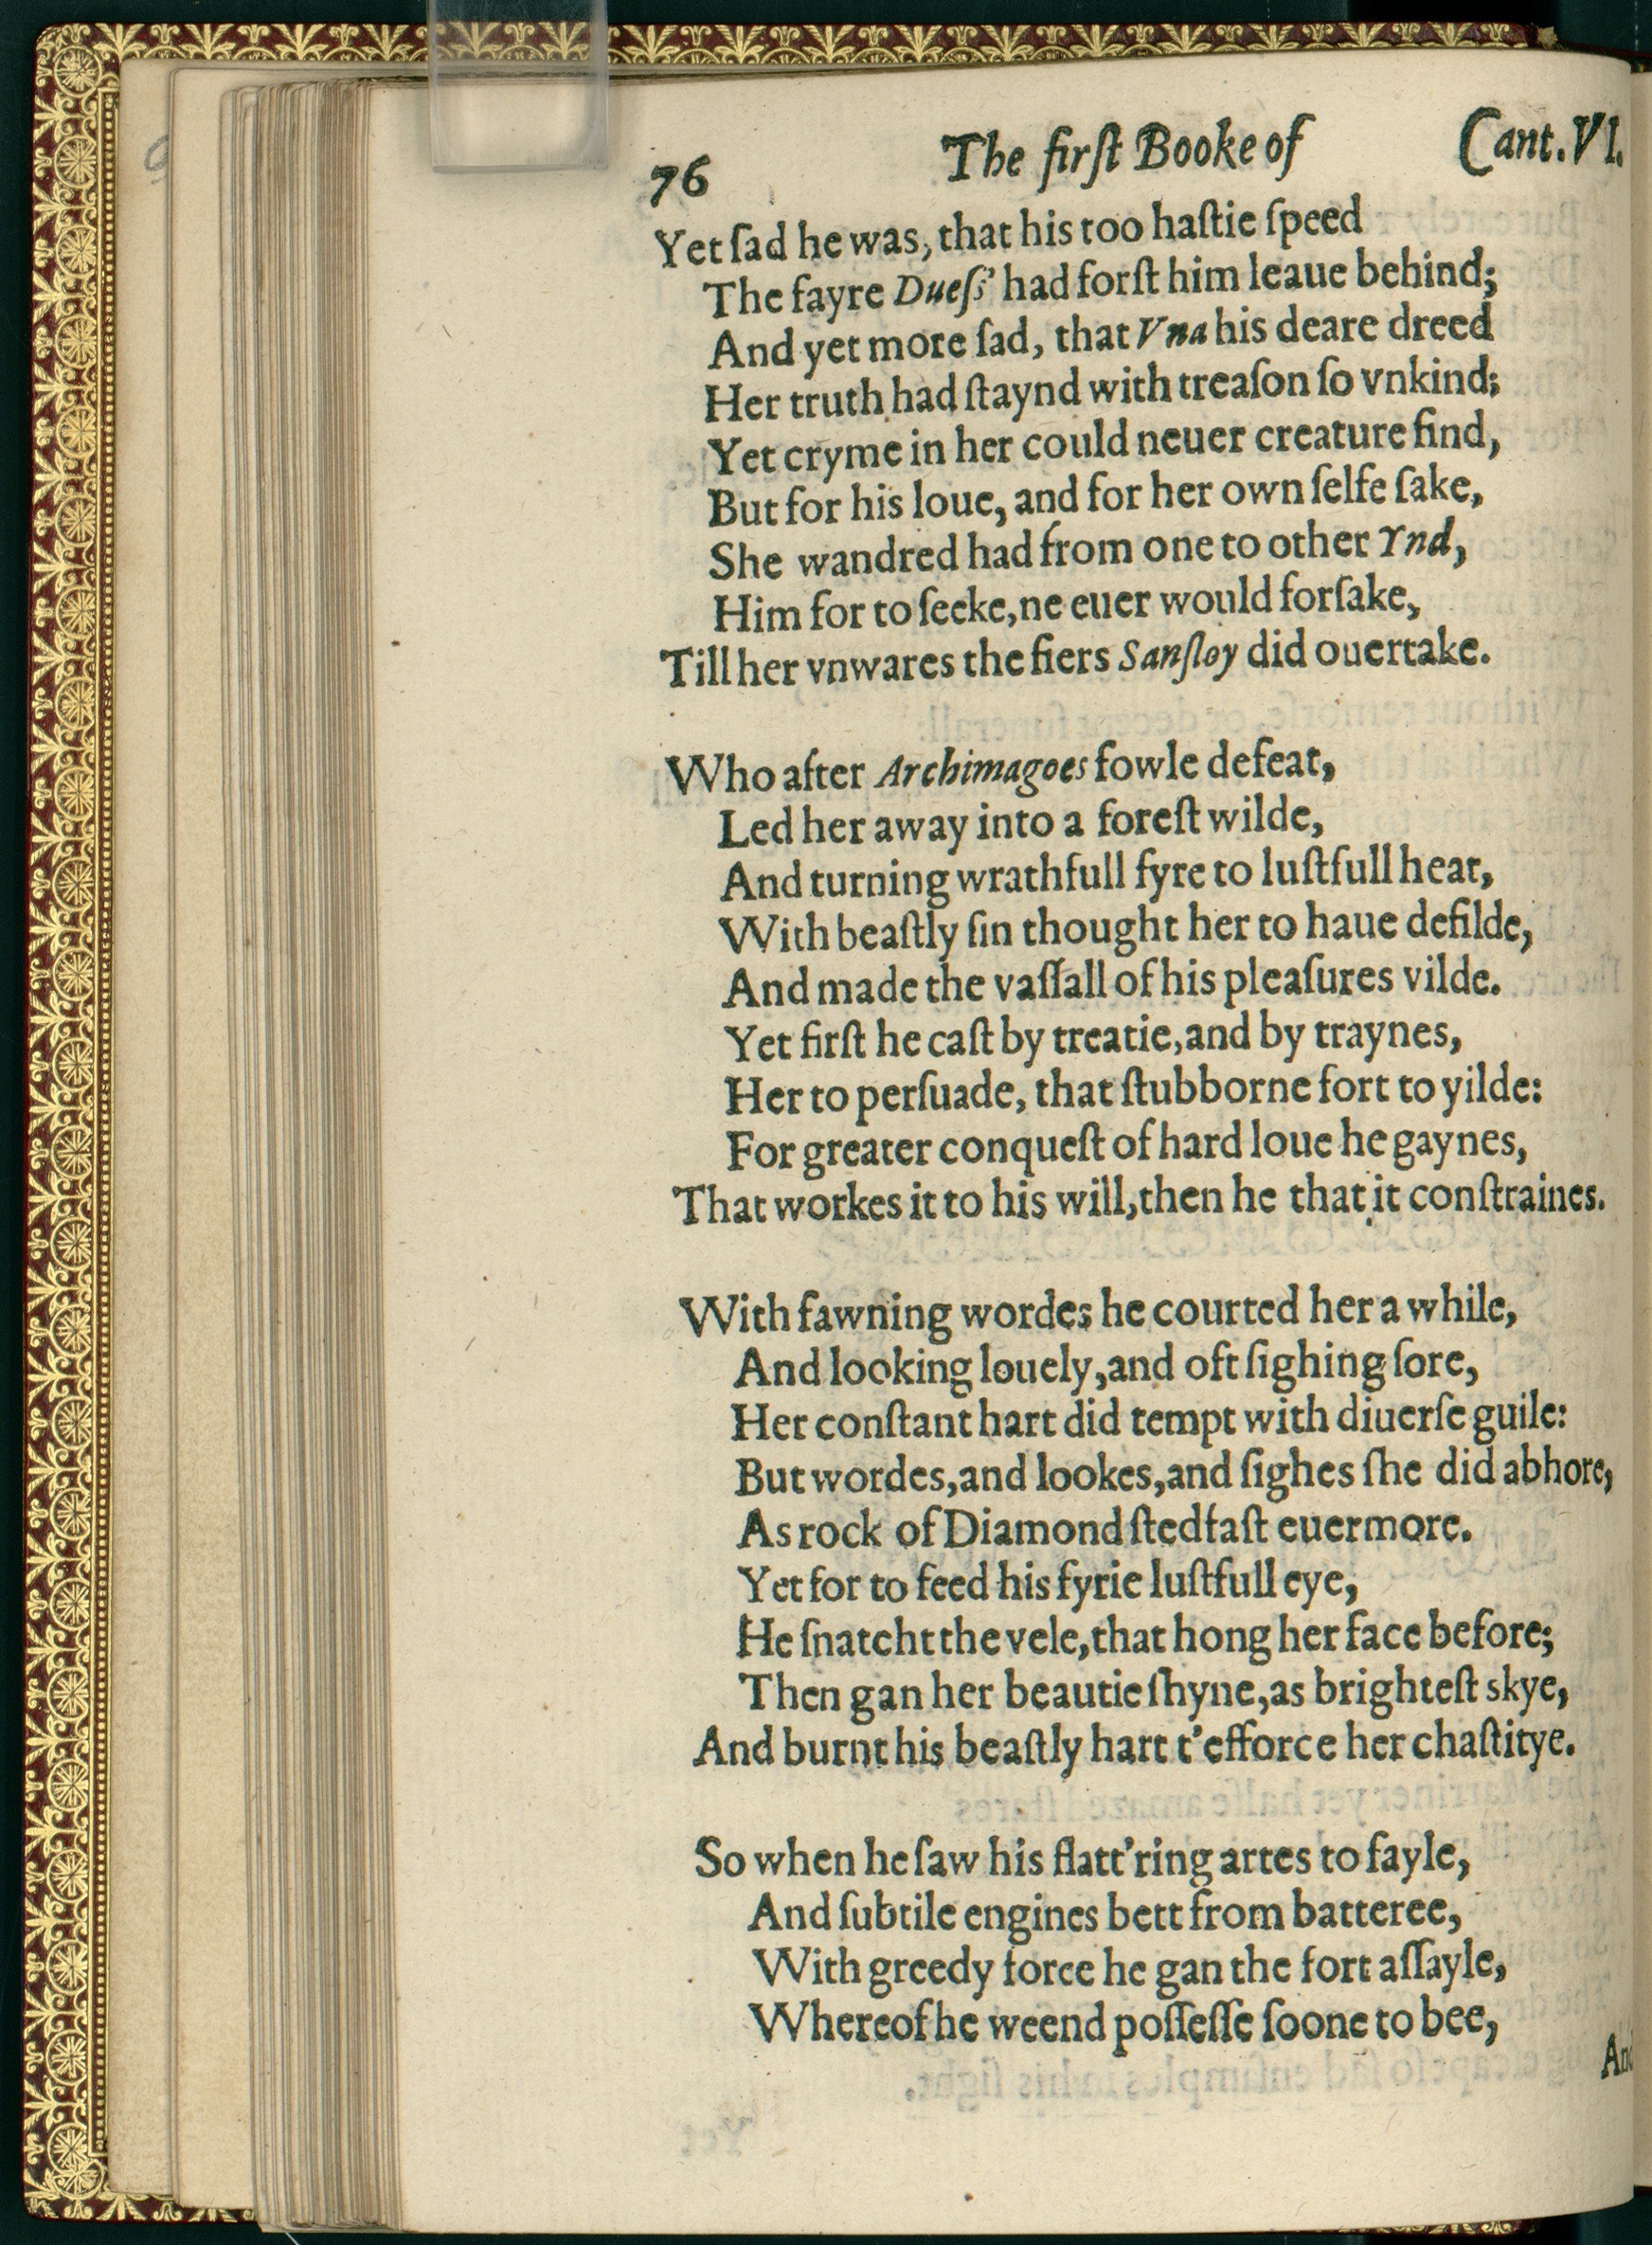 76 The firſt Booke of Cant.VI.
Yet ſad he was, that his too haſtie ſpeed
The fayre Dueſs' had forſt him leaue behind;
And yet more ſad, that Vna his deare dreed
Her truth had ſtaynd with treaſon ſo vnkind;
Yet cryme in her could neuer creature find,
But for his loue, and for her own ſelfe ſake,
She wandred had from one to other Ynd,
Him for to ſeeke, ne euer would forſake,
Till her vnwares the fiers Sanſloy did ouertake.
Who after Archimagoes fowle defeat,
Led her away into a foreſt wilde,
And turning wrathfull fyre to luſtfull heat,
With beaſtly ſin thought her to haue defilde,
And made the vaſſall of his pleaſures vilde.
Yet firſt he caſt by treatie, and by traynes,
Her to perſuade, that ſtubborne fort to yilde:
For greater conqueſt of hard loue he gaynes,
That workes it to his will, then he that it conſtraines.
With fawning wordes he courted her a while,
And looking louely, and oft ſighing ſore,
Her conſtant hart did tempt with diuerſe guile:
But wordes, and lookes, and ſighes ſhe did abhore,
As rock of Diamond ſtedfaſt euermore.
Yet for to feed his fyrie luſtfull eye,
He ſnatcht the vele, that hong her face before;
Then gan her beautie ſhyne, as brighteſt skye,
And burnt his beaſtly hart t'efforce her chaſtitye.
So when he ſaw his flatt'ring artes to fayle,
And ſubtile engines bett from batteree,
With greedy force he gan the fort aſſayle,
Whereof he weend poſſeſſe ſoone to bee,
And